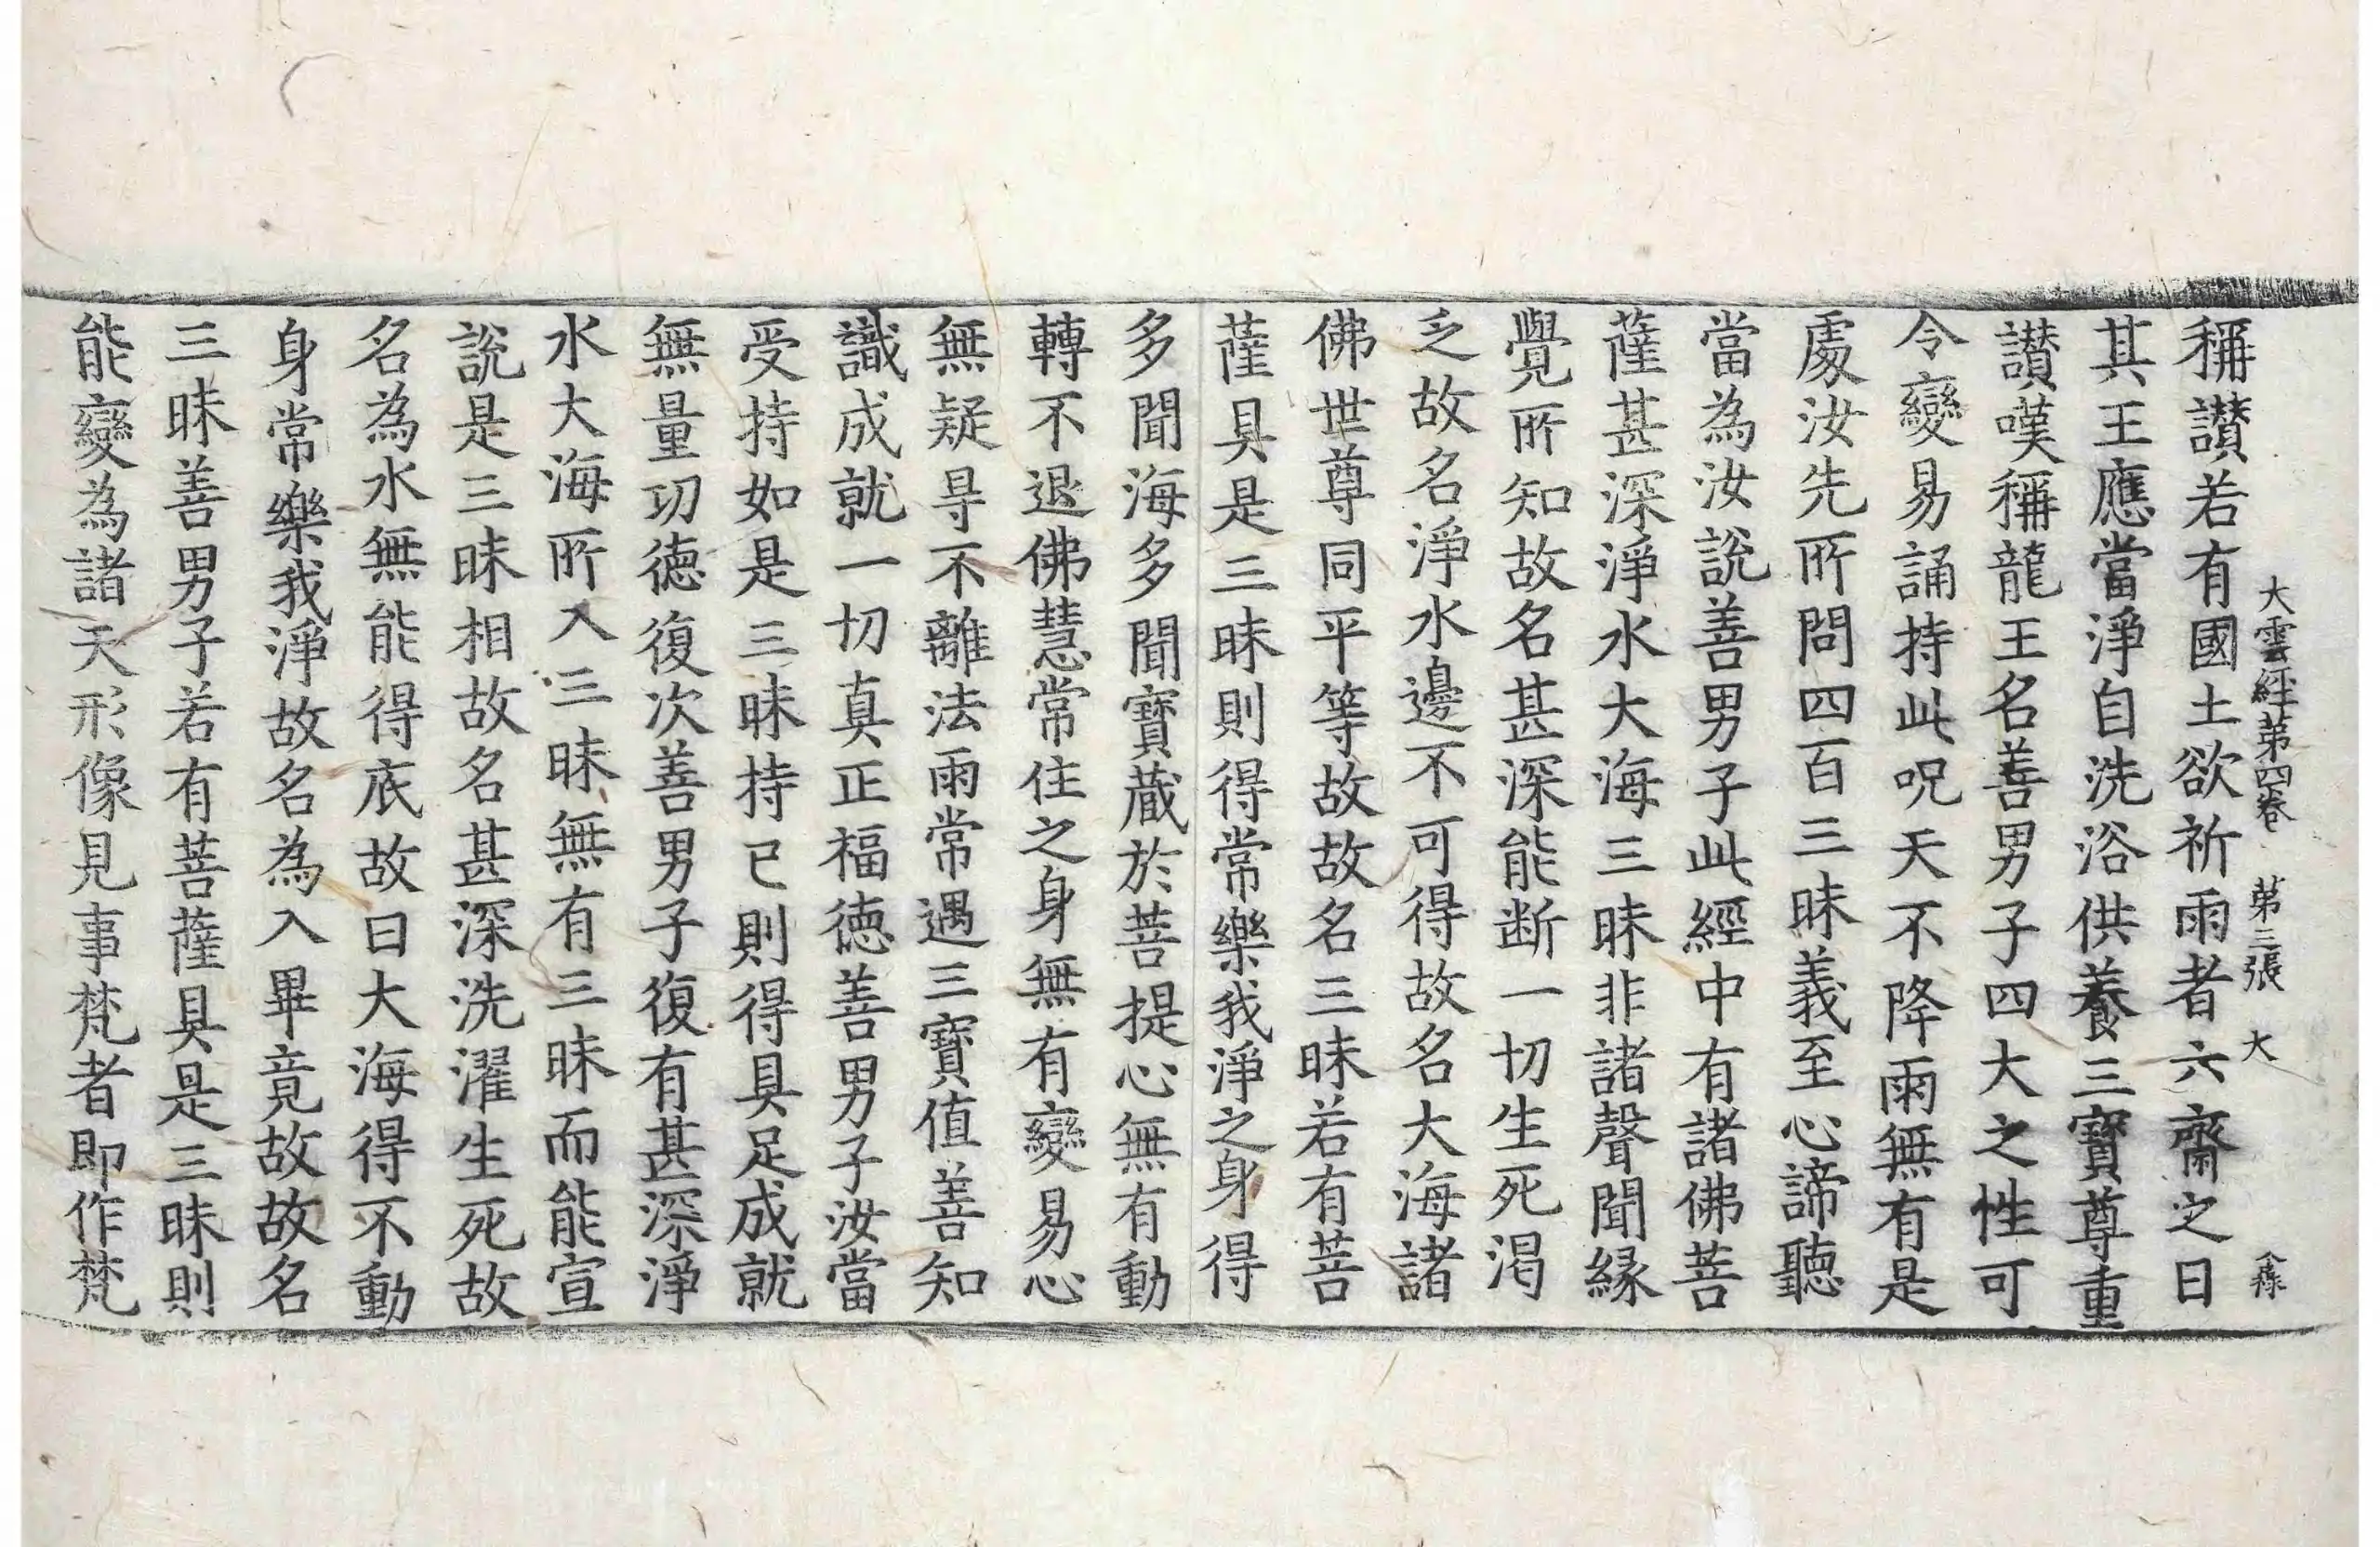 大雲經第四卷 第三張 大
稱讃若有國土欲祈雨者六齋之日
其王應當淨自洗浴供養三寶尊重
讃嘆稱龍王名善男子四大之性可
令變易誦持此呪天不降雨無有是
處汝先所問四百三昧義至心諦聽
當為汝說善男子此經中有諸佛菩
薩甚深淨水大海三昧非諸聲聞縁
覺所知故名甚深能断一切生死渇
乏故名淨水邊不可得故名大海諸
佛世尊同平等故故名三昧若有菩
薩具是三昧則得常樂我淨之身得
多聞海多聞寶蔵於菩提心無有動
轉不退佛慧常住之身無有變易心
無疑㝵不離法雨常遇三寶值善知
識成就一切真正福德善男子汝當
受持如是三昧持已則得具足成就
無量功德復次善男子復有甚深淨
水大海所入三昧無有三昧而能宣
說是三昧相故名甚深洗濯生死故
名為水無能得底故曰大海得不動
身常樂我淨故名為入畢竟故故名
三昧善男子若有菩薩具是三昧則
能變為諸天形像見事梵者即作梵